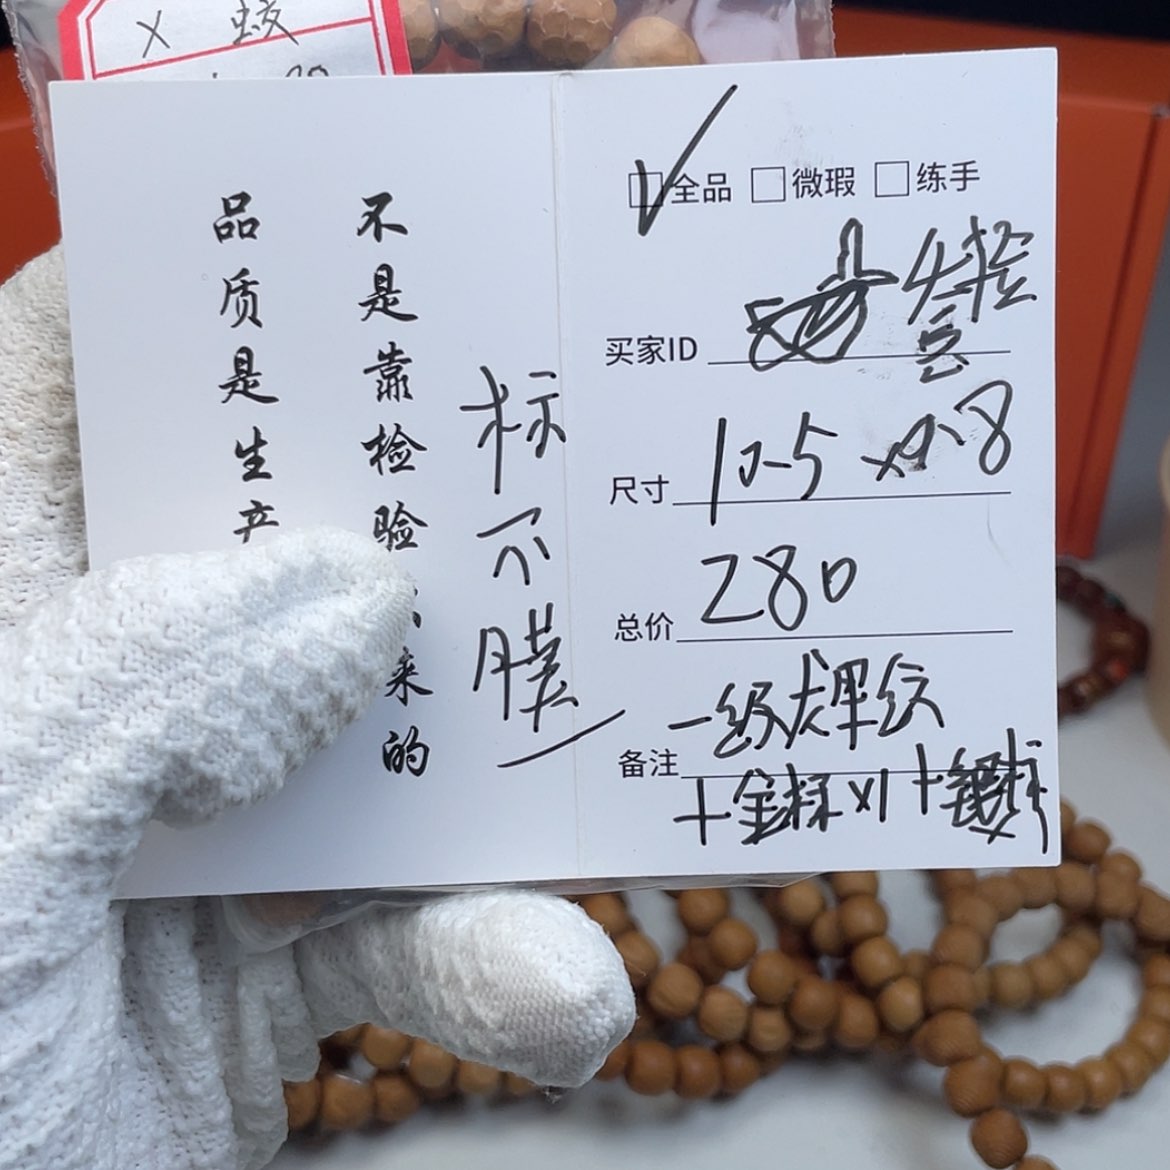 X 蛟
品质是生产
不是靠检验
来的
标不膜
全品 微瑕 练手
买家ID
尺寸 10.5 x9.8
总价 280
一级大果纹
备注
+金标x1+